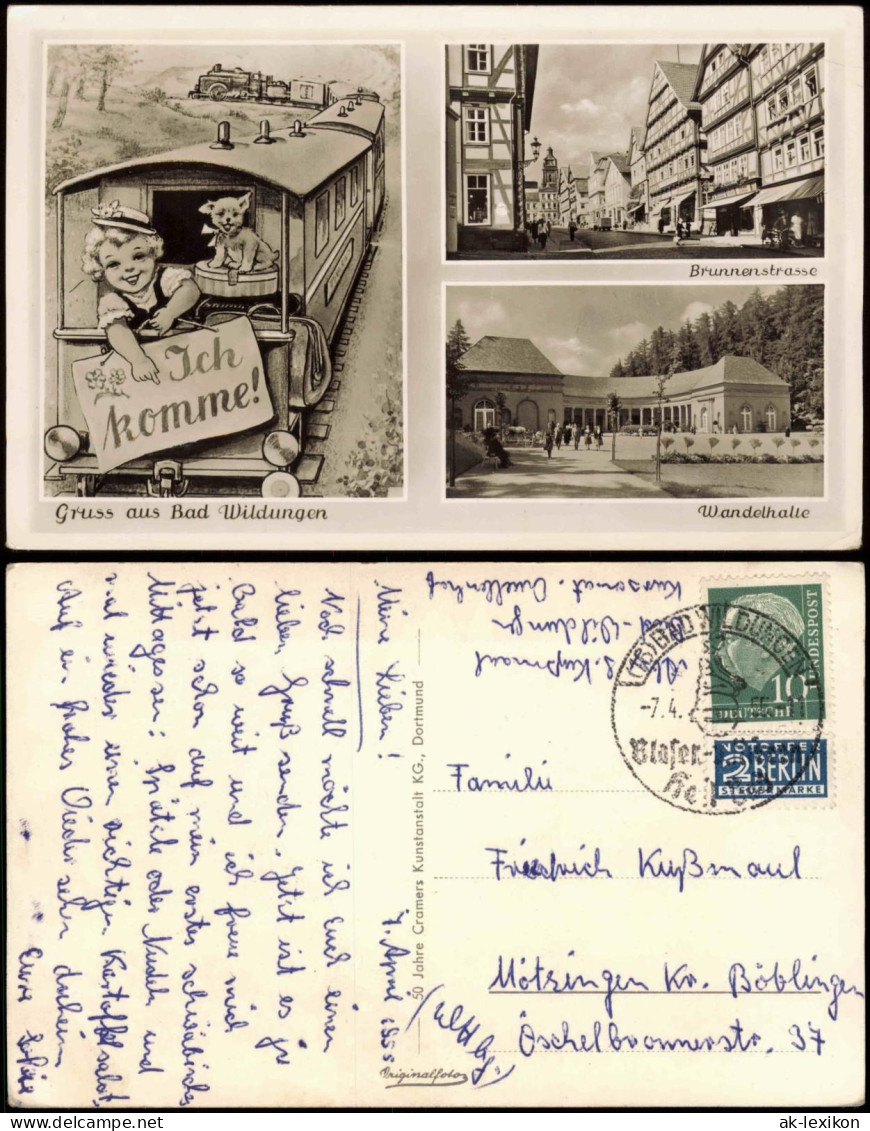 Ich
komme!
Gruss aus Bad Wildungen
Brunnenstrasse
Wandelhalle
Meine Lieben!
7. April 1955
Noch schnell möchte ich Euch einen
lieben Gruß senden. Jetzt ist es ja
bald so weit und ich freue mich
jetzt schon auf mein erstes schwäbisches
Mittagessen: Spätzle oder Nudeln und
mal wieder einen richtigen Kartoffelsalat.
Auf ein frohes Wiedersehen daheim
Eure
50 Jahre Cramers Kunstanstalt KG., Dortmund
Originalfoto
Abs. Kußmaul
Bad-Wildungen
Kursanat. Quellenhof
BAD WILDUNGEN
-7.4.55
Blasen-
BUNDESPOST
10
DEUTSCHE
NOTOPFER
2 BERLIN
STEUERMARKE
Familie
Friedrich Kußmaul
Mötzingen Kr. Böblingen
Öschelbronnerstr. 37
ak-lexikon.com